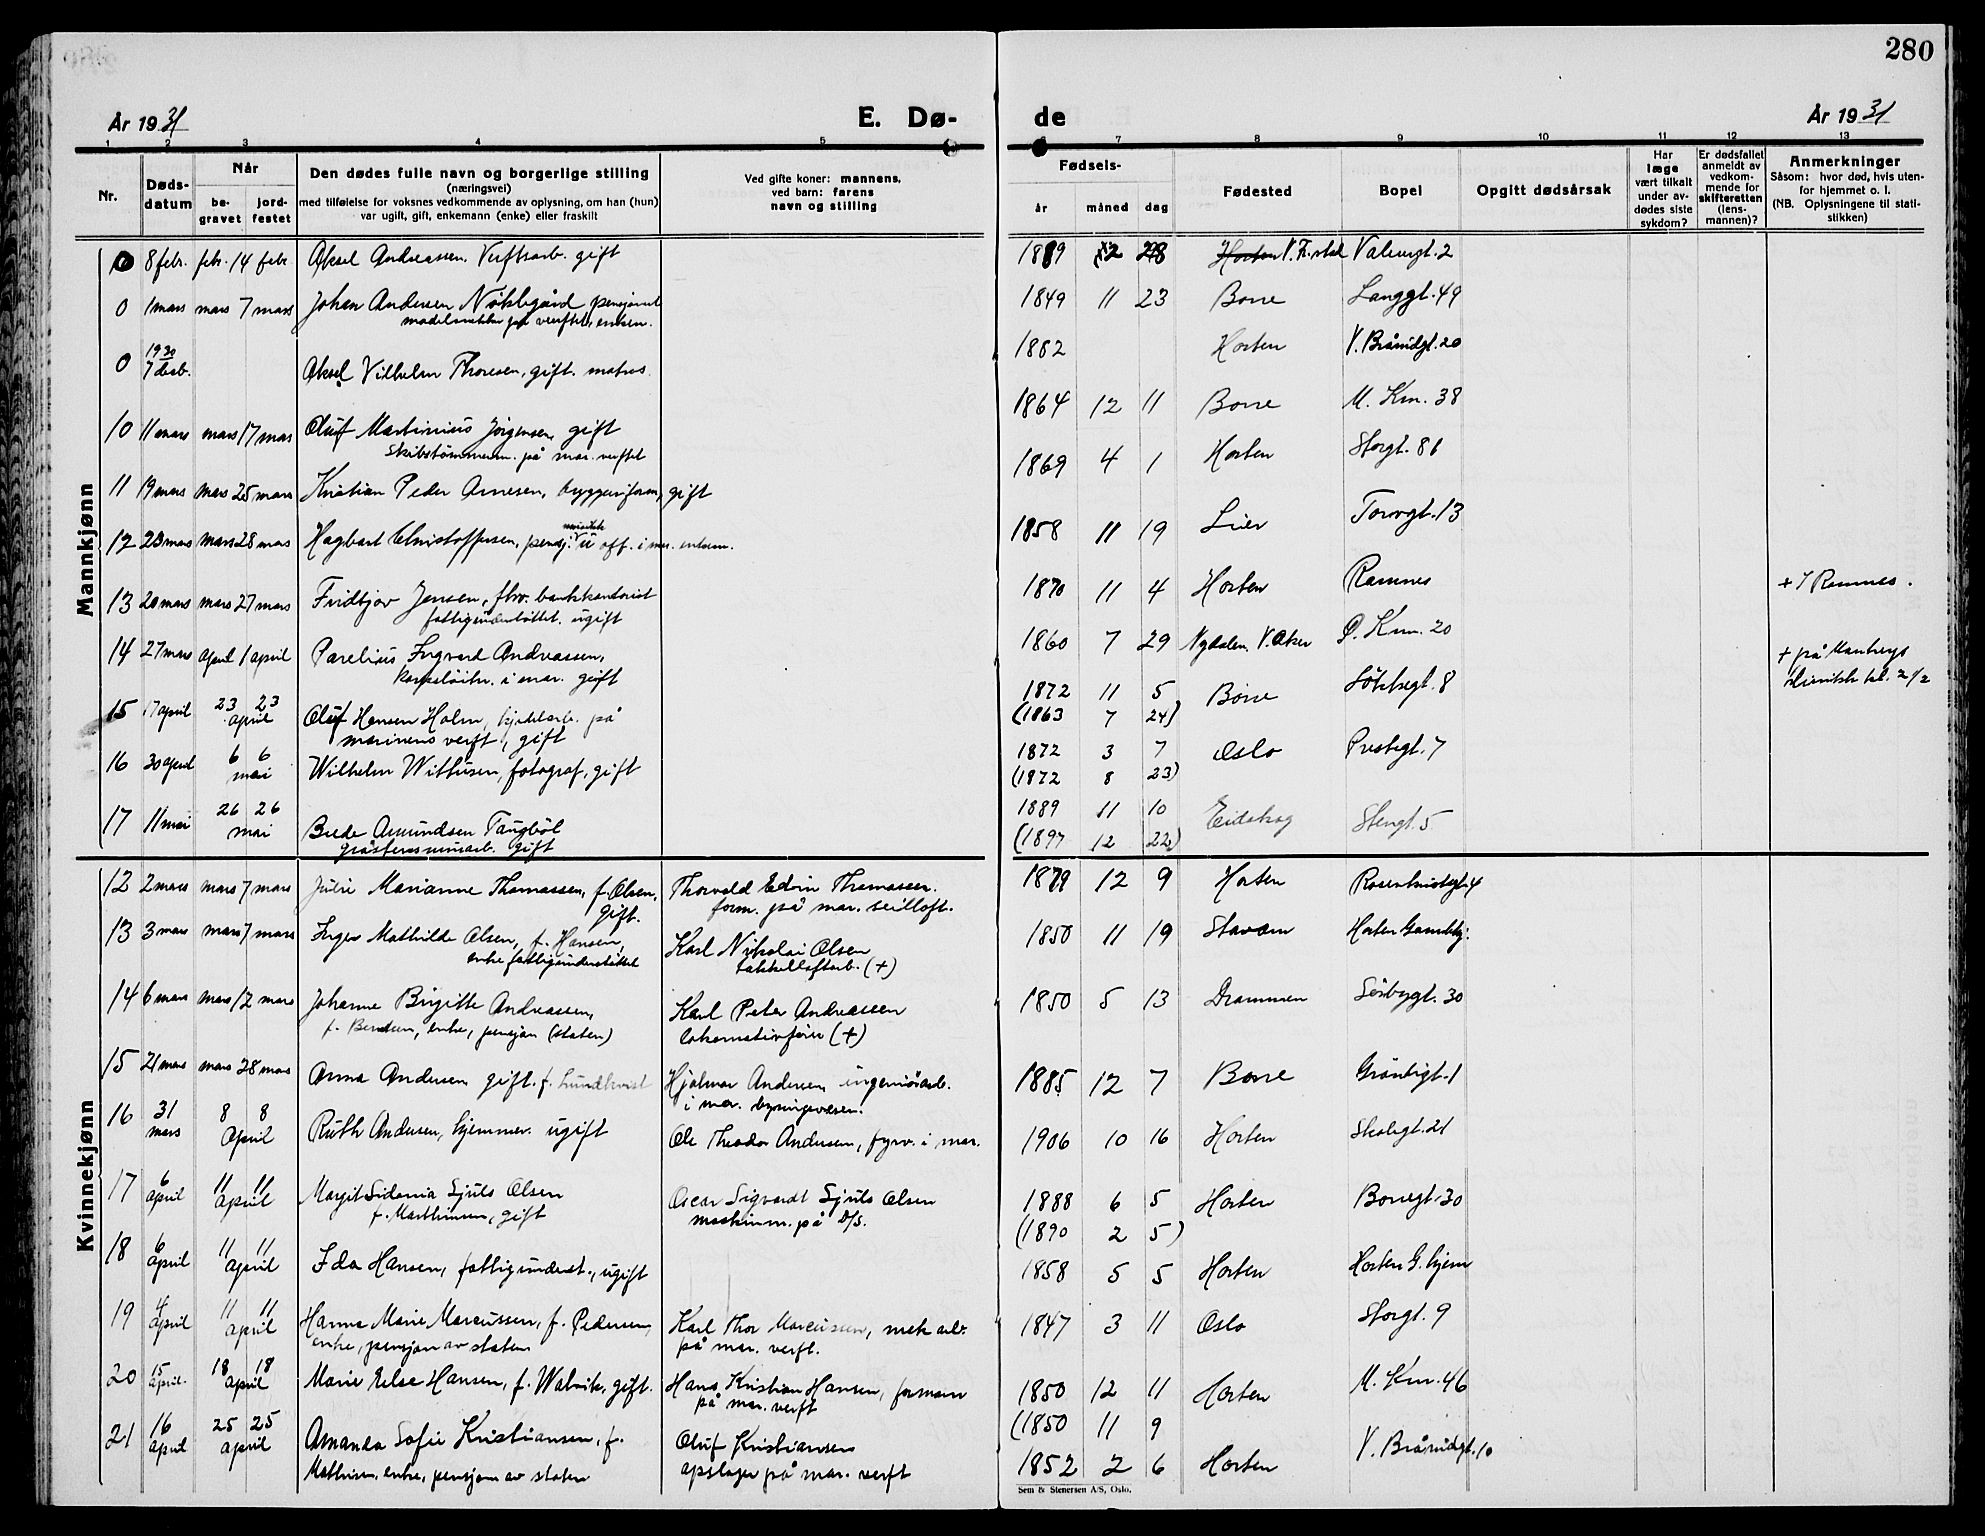 280
År 1931 E. Dø- de År 1931
1 2 3 4 5 6 7 8 9 10 11 12 13
Nr.
Døds-
datum
Når
be-
gravet
jord-
festet
Den dødes fulle navn og borgerlige stilling
(næringsvei)
med tilføielse for voksnes vedkommende av oplysning, om han (hun)
var ugift, gift, enkemann (enke) eller fraskilt
Ved gifte koner: mannens,
ved barn: farens
navn og stilling
Fødsels-
år måned dag
Fødested
Bopel
Opgitt dødsårsak
Har
læge
vært tilkalt
under av-
dødes siste
sykdom?
Er dødsfallet
anmeldt av
vedkom-
mende for
skifteretten
(lens-
mannen)?
Anmerkninger
Såsom: hvor død, hvis uten-
for hjemmet o. l.
(NB. Oplysningene til stati-
stikken)
Mannkjønn
0 8 febr. febr. 14 febr. Aksel Andreassen. Verftsarb. gift 1889 12 28 Horten V. Fr.stad Valengt. 2
0 1 mars mars 7 mars Johan Andersen Nøklegård pensjonert 1849 11 23 Borre Langgt. 49
på verftet, enkem.
0 1930
7 desb. Aksel Vilhelm Thoresen, gift. matros. 1882 Horten V. Bråridgt. 20
10 11 mars mars 17 mars Oluf Martinius Jørgensen, gift 1864 12 11 Borre M. Km. 38
Skibstømmerm. på mar. verftet
11 19 mars mars 25 mars Kristian Peder Arnesen, byggeriform, gift 1869 4 1 Horten Storgt. 86
12 23 mars mars 28 mars Hagbart Christoffersen, pensj. u off. i mar. enkem. 1858 11 19 Lier Torvgt. 13
13 20 mars mars 27 mars Fridtjov Jensen, fhv. bankkontorist 1870 11 4 Horten Ramnes + I Ramnes.
fattigunderstøttet. ugift
14 27 mars april 1 april Parelius Ingvard Andreassen, 1860 7 29 Nydalen, V. Aker Ø. Km. 20 + på
i mar. gift klinikk kl. 2 1/2
15 17 april 23 23
april Oluf Hansen Holm, kjedelarb. på 1872 11 5 Borre Løkkegt. 8
marinens verft, gift (1863 7 24)
16 30 april 6 6
mai Wilhelm Withusen, fotograf, gift 1872 3 7 Oslo Prestegt. 7
(1872 8 23)
17 11 mai 26 26
mai Brede Amundsen Taugbøl 1889 11 10 Eidskog Stengt. 5
gift (1897 12 22)
Kvinnekjønn
12 2 mars mars 7 mars Julie Marianne Thomassen, f. Olsen, Thorvald Edvin Thomassen. 1879 12 9 Horten
gift. form. på mar. seilloft.
13 3 mars mars 7 mars Inger Mathilde Olsen, f. Hansen, Karl Nikolai Olsen 1850 11 19 Stavern Horten Gamlehj.
enke fattigunderstøttet takkelloftarb. (+)
14 6 mars mars 12 mars Johanne Birgitte Andreassen, Karl Peter Andreassen 1850 5 13 Drammen Sørbygt. 30
f. Berntsen, enke, pensjon (staten) lokomotivfører (+)
15 21 mars mars 28 mars Anna Andersen gift. f. Lundkvist Hjalmar Andersen, ingeniørarb. 1885 12 7 Borre Grønligt. 1
i mar. bygningsvæsen.
16 31
mars 8 8
April Ruth Andersen, hjemmev. ugift Ole Theodor Andersen, fyrv. i mar. 1906 10 16 Horten Skolegt. 21
17 6
april 11 11
april Margit Sidonia Sjuls Olsen Oscar Sigvardt Sjuls Olsen 1888 6 5 Horten Borregt. 30
f. Marthinsen, gift maskinm. på D/S. (1890 2 5)
18 6
april 11 11
april Ida Hansen, fattigunderst., ugift 1858 5 5 Horten Horten G. hjem
19 4
april 11 11
april Hanna Marie Marcussen, f. Pedersen, Karl Thor Marcussen, mek arb. 1847 3 11 Oslo Storgt. 9
enke, pensjon av staten på mar. verft.
20 15
april. 18 18
april Marie Else Hansen, f. Walvik, gift. Hans Kristian Hansen, formann 1850 12 11 Horten M. Km. 46
på mar. verft (1850 11 9
21 16
april 25 25
april Amanda Sofie Kristiansen, f. Oluf Kristiansen 1852 2 6 Horten V. Bråridgt. 10
Mathisen, enke, pensjon av staten opslager på mar. verft
Sem & Stenersen A/S, Oslo.